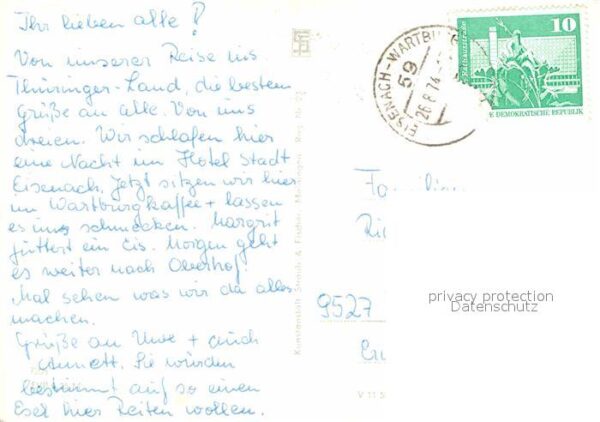 Ihr lieben alle!
Von unserer Reise ins
Thüringer-Land, die besten
Grüße an alle. Von uns
dreien. Wir schlafen hier
eine Nacht im Hotel Stadt
Eisenach. Jetzt sitzen wir hier
im Wartburgkaffee + lassen
es uns schmecken. Margrit
futtert ein Eis. Morgen geht
es weiter nach Oberhof.
Mal sehen was wir da alles
machen.
Grüße an Uwe + auch
Annett. Sie würden
bestimmt auf so einen
Esel hier Reiten wollen.
Kunstanstalt Straub & Fischer, Meiningen
V 11 5
EISENACH-WARTBURG
59
26.8.74
10
DEMOKRATISCHE REPUBLIK
Familie
9527
privacy protection
Datenschutz